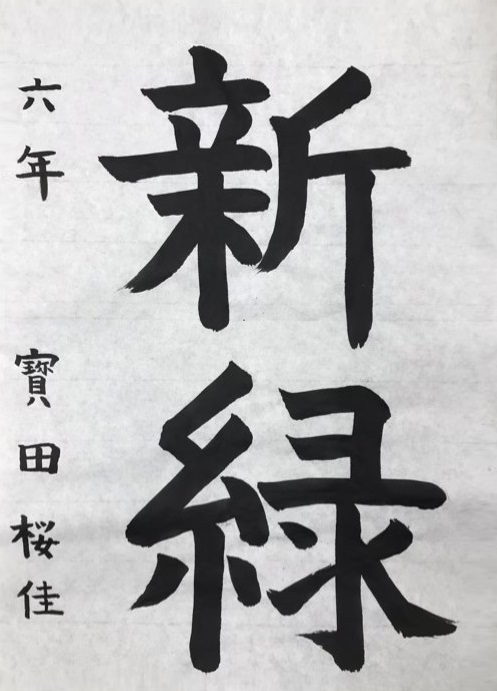 新緑
六年 寳田桜佳